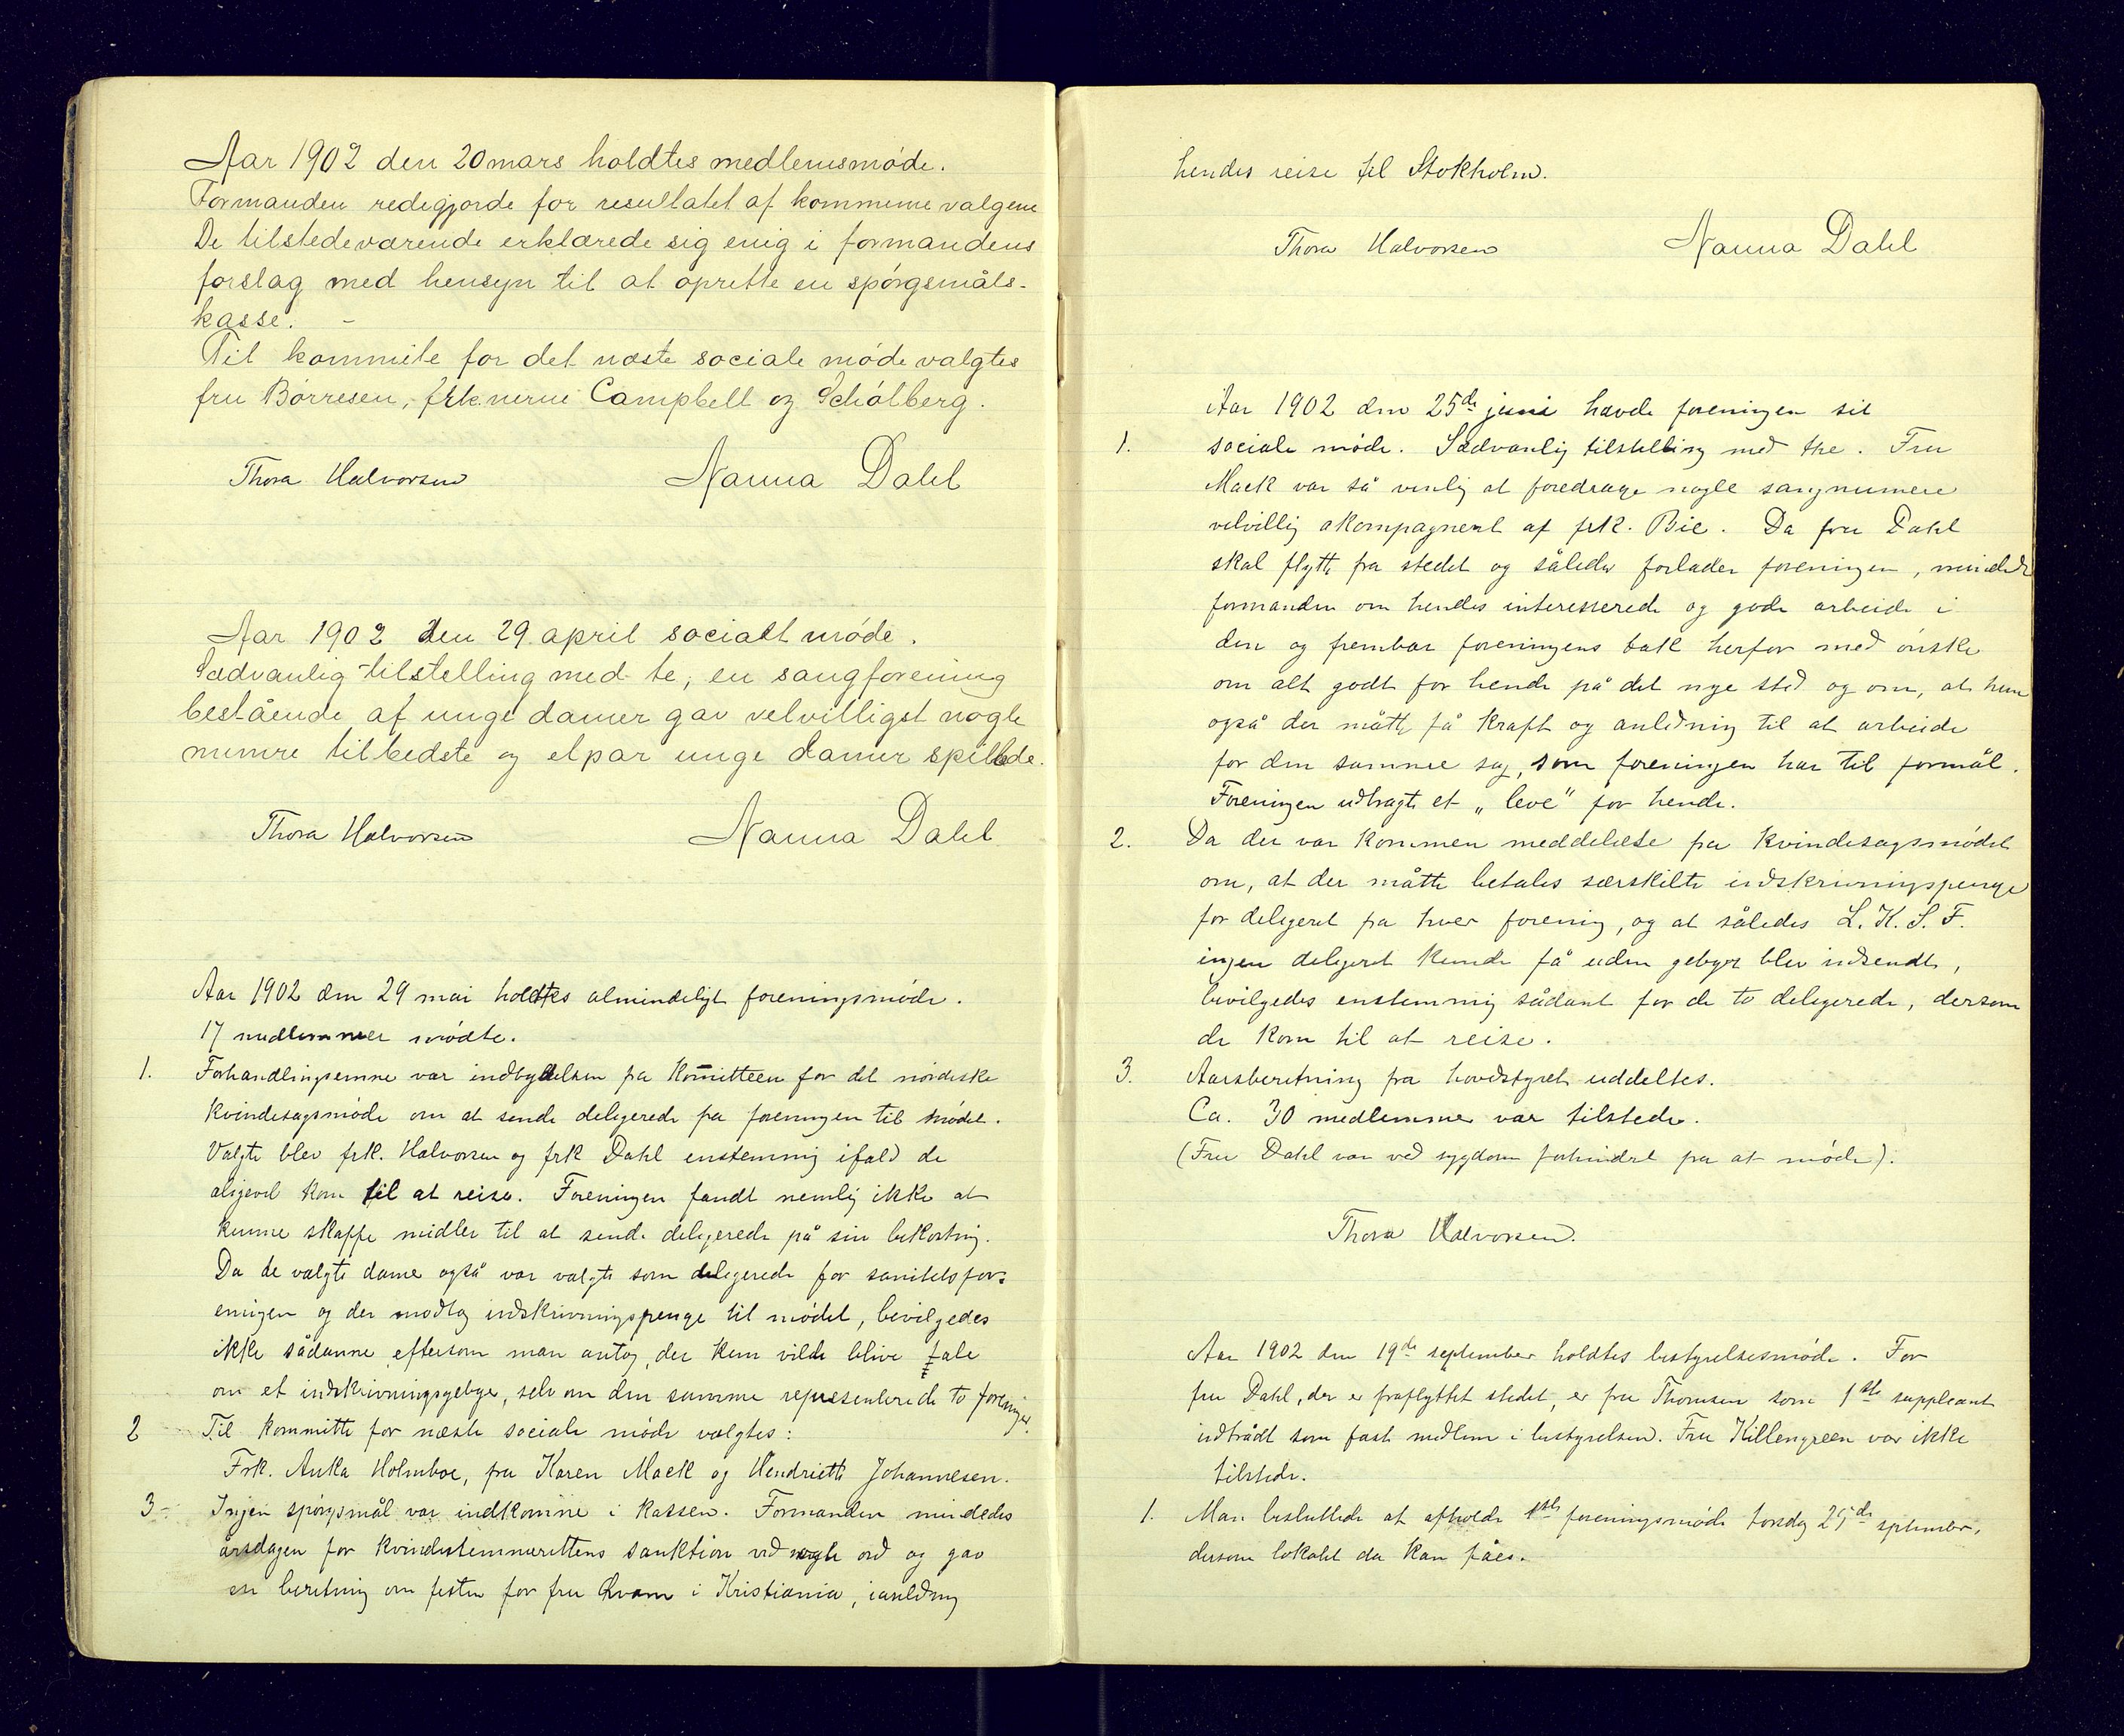 Aar 1902 den 20 mars holdtes medlemsmøde.
Formanden redegjorde for resultatet af kommunevalgene
De tilstedeværende erklærede sig enig i formandens
forslag med hensyn til at oprette en spørgsmåls-
kasse. -
Til kommite for det næste sociale møde valgtes
fru Børresen, frknerne Campbell og Schølberg.
Thora Halvorsen Nanna Dahl
Aar 1902 den 29. april socialt møde.
Sædvanlig tilstelling med te, en sangforening
bestående af unge damer gav velvilligst nogle
numre tilbedste og et par unge damer spillede.
Thora Halvorsen Nanna Dahl
Aar 1902 den 29 mai holdtes almindeligt foreningsmøde.
17 medlemmer mødte.
1. Forhandlingsemne var indbydelsen fra komitteen for det nordiske
kvindesagsmøde om at sende delegerede fra foreningen til mødet.
Valgte blev frk. Halvorsen og frk Dahl enstemmig ifald de
aligevel kom til at reise. Foreningen fandt nemlig ikke at
kunne skaffe midler til at sende delegerede på sin bekostning.
Da de valgte damer også var valgte som delegerede for sanitetsfor=
eningen og der modtog indskrivningspenge til mødet, bevilgedes
ikke sådanne eftersom man antog, der kun vilde blive tale
om et indskrivningsgebyr, selv om den samme representerede to foreninger.
2 Til kommitte for næste sociale møde valgtes:
Frk. Anka Holmboe, fru Karen Mack og Hendriette Johannesen.
3- Ingen spørgsmål var indkomne i kassen. Formanden mindedes
årsdagen for kvindestemmerettens sanktion ved nogle ord og gav
en beretning om festen for fru Qvam i Kristiania, i anledning
hendes reise til Stokholm.
Thora Halvorsen Nanna Dahl
Aar 1902 den 25de juni havde foreningen sit
1. sociale møde. Sædvanlig tilstelling med the. Fru
Mack var så venlig at foredrage nogle sangnumere
velvillig akompagneret af frk. Bie. Da fru Dahl
skal flytte fra stedet og således forlader foreningen, mindede
formanden om hendes interesserede og gode arbeide i
den og frembar foreningens tak herfor med ønske
om alt godt for hende på det nye sted og om, at hun
også der måtte få kraft og anledning til at arbeide
for den samme sag, som foreningen har til formål.
Foreningen udbragte et „leve" for hende.
2. Da der var kommen meddelelse fra kvindesagsmødet
om, at der måtte betales særskilte indskrivningspenge
for delegeret fra hver forening, og at således L. K. S. F.
ingen delegeret kunde få uden gebyr blev indsendt,
bevilgedes enstemmig sådant for de to delegerede, dersom
de kom til at reise.
3. Aarsberetning fra hovedstyret uddeltes.
Ca. 30 medlemmer var tilstede.
(Fru Dahl var ved sygdom forhindret fra at møde).
Thora Halvorsen.
Aar 1902 den 19de september holdtes bestyrelsesmøde. For
fru Dahl, der er fraflyttet stedet, er fru Thomsen som 1ste suppleant
indtrådt som fast medlem i bestyrelsen. Fru Killengreen var ikke
tilstede.
1. Man besluttede at afholde 1ste foreningsmøde torsdag 25de september,
dersom lokalet da kan fåes.